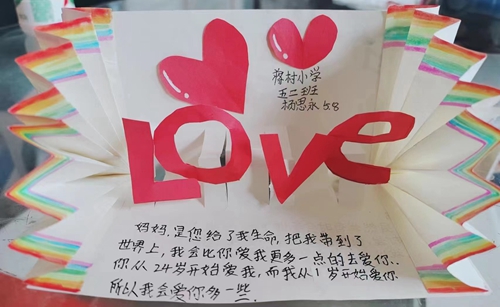 蒋村小学
五二班
杨思永 5.8
LOVe
妈妈,是您给了我生命,把我带到了
世界上,我会比你爱我更多一点的去爱你..
你从24岁开始爱我,而我从1岁开始爱你
所以我会爱你多一些.